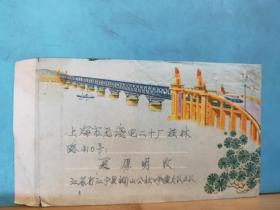 上海市无线电二十厂桂林
路410号
夏原明收
江苏省江宁县铜山公社